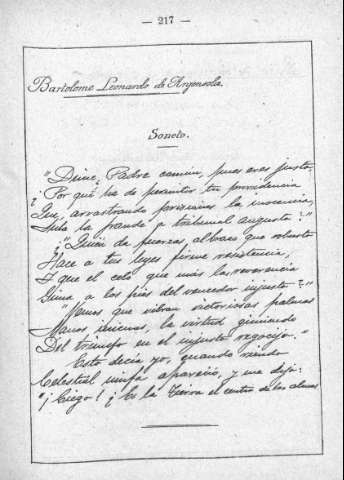 — 217 —
Bartolome Leonardo de Argensola.
Soneto.
"Dime, Padre comun, pues eres justo,
¿Por qué ha de permitir tu providencia
Que, arrastrando prisiones la inocencia,
Suba la fraude a tribunal augusto?"
"¿Quién da fuerzas al brazo que robusto
Hace a tus leyes firme resistencia,
Y que el celo que más la reverencia
Gima a los piés del vencedor injusto?"
"Vemos que vibran victoriosas palmas
Manos inicuas, la virtud gimiendo
Del triunfo en el injusto regocijo."
Esto decía yo, quando riendo
Celestial ninfa apareció, y me dijo:
"¡Ciego! ¿Es la Tierra el centro de las almas